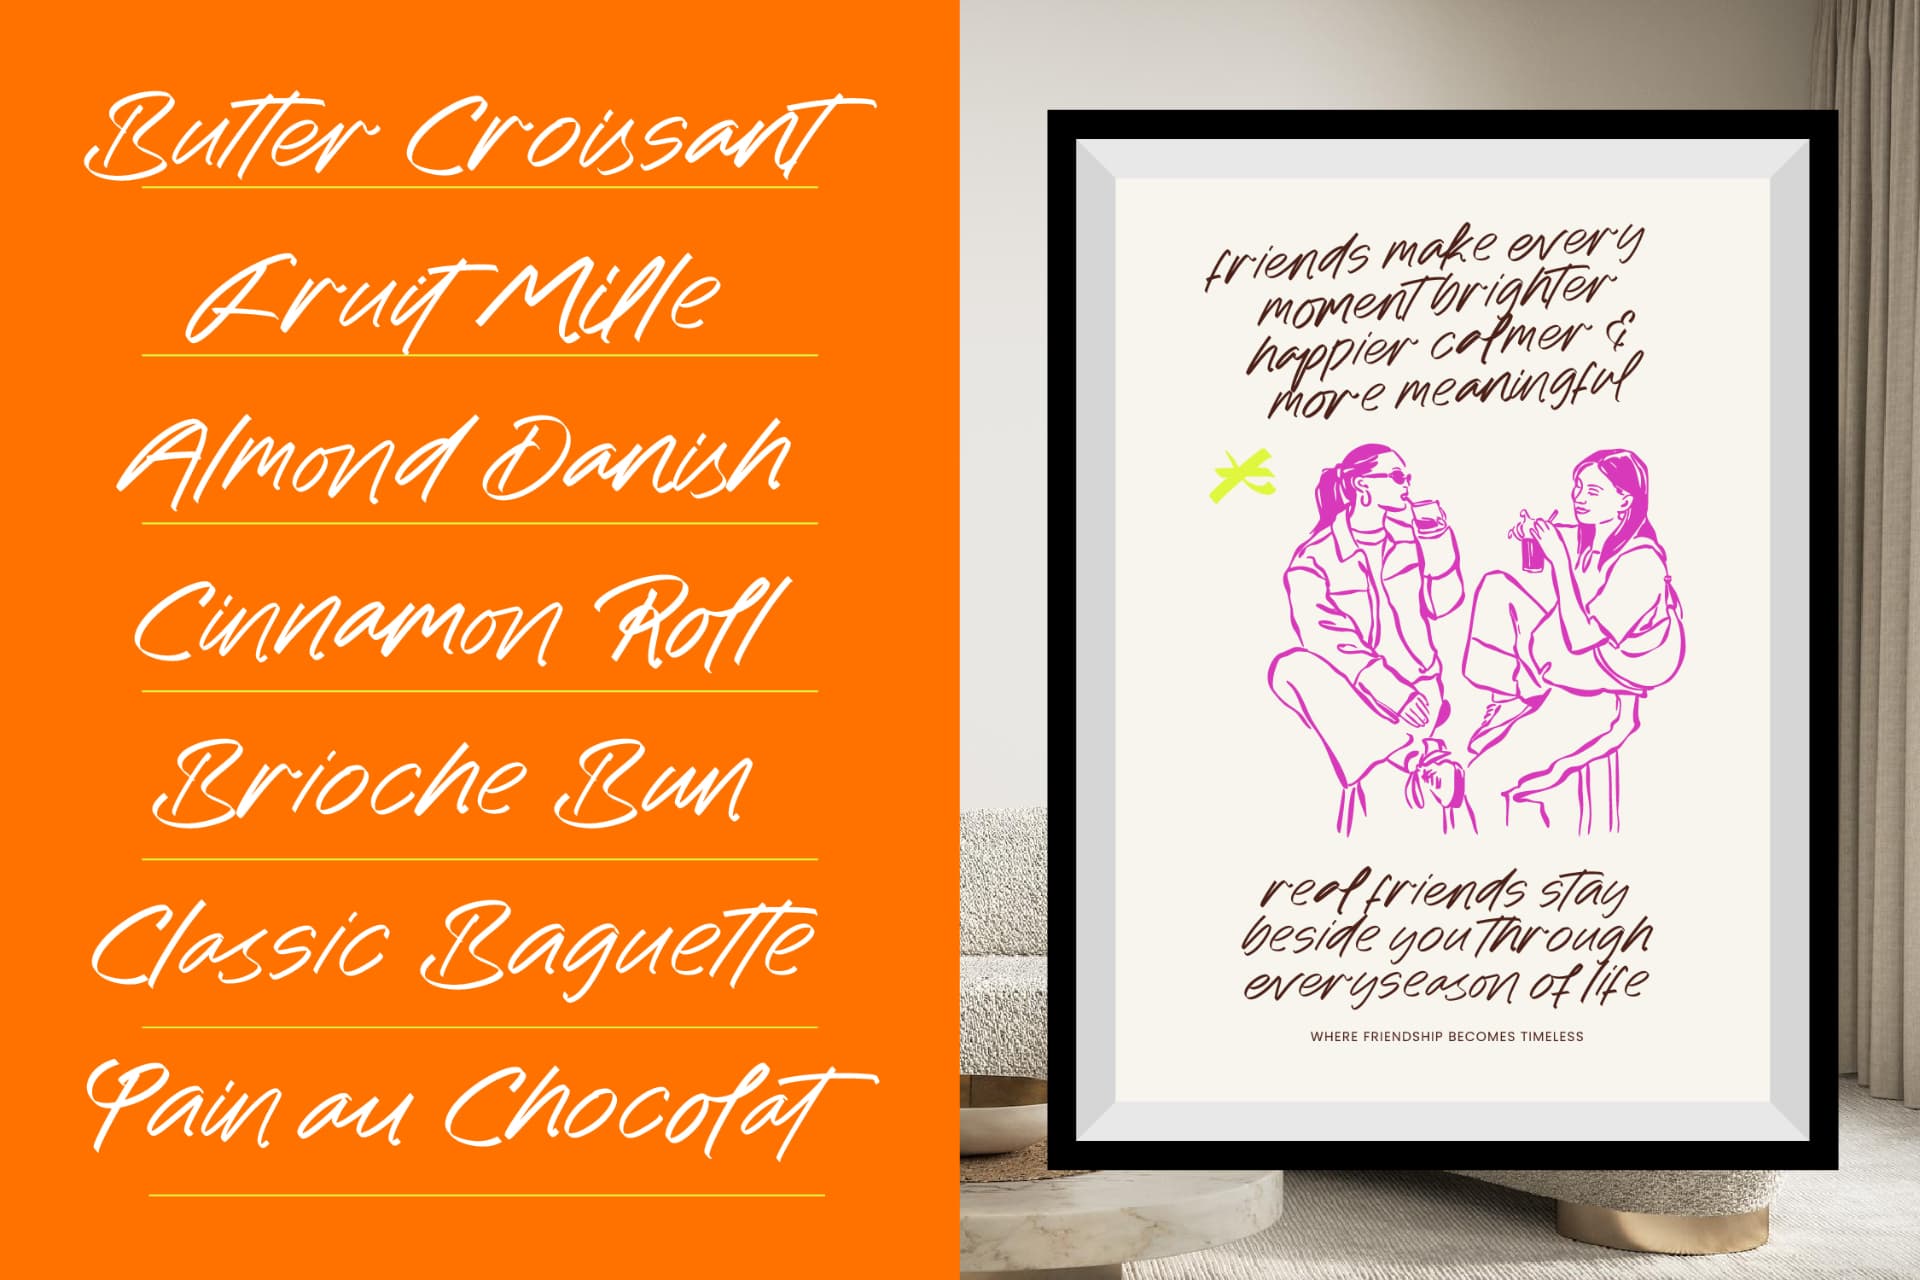 Butter Croissant
Fruit Mille
Almond Danish
Cinnamon Roll
Brioche Bun
Classic Baguette
Pain au Chocolat
friends make every
moment brighter
happier calmer &
more meaningful
real friends stay
beside you through
everyseason of life
WHERE FRIENDSHIP BECOMES TIMELESS